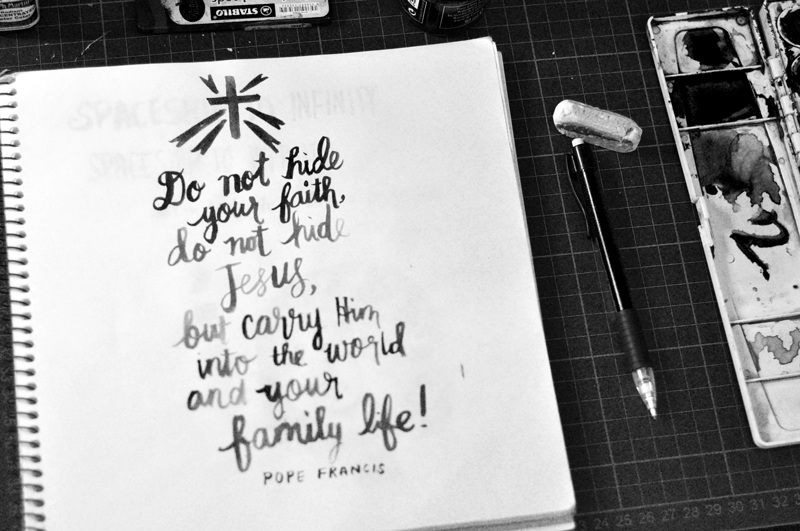 STABILO
SPACESH INFINITY
Do not hide
your faith,
do not hide
Jesus,
but carry Him
into the world
and your
family life!
POPE FRANCIS
26 27 28 29 30 31 32 33